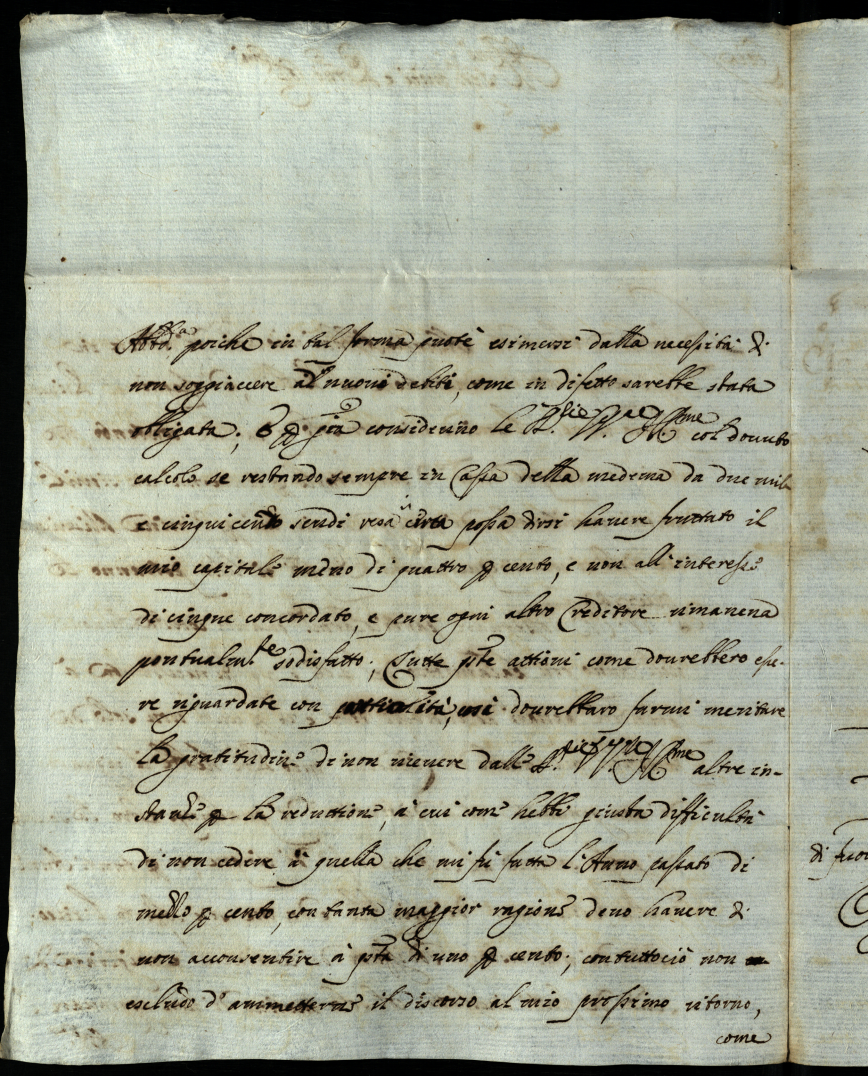 poiche in tal forma puote esimersi dalla necessità di
non soggiacere à nuovi debiti, come in difetto sarebbe stata
obligata; E p già considerino le S.rie V.e Ill.me col dovuto
calcolo se restando sempre in Cassa della medema da due mila
e cinquecento scudi possa dirsi havere fruttato il
mio capitale meno di quattro p cento, e non all'interesse
di cinque concordato, e pure ogni altro Creditore rimaneva
pontualm.te sodisfatto; Tutte q.te attioni come dovrebbero esse-
re riguardate con così dovrebbero farmi meritare
la gratitudine di non ricevere dalle S.rie V.e Ill.me altre in-
stanze p la reduttione, à cui come hebbi giusta difficultà
di non cedere à quella che mi fù fatta l'Anno passato di
mezzo p cento, con tanta maggior ragione devo havere di
non acconsentire à q.ta di uno p cento; contuttociò non
escludo d'ammetterne il discorso al mio prossimo ritorno,
come
di